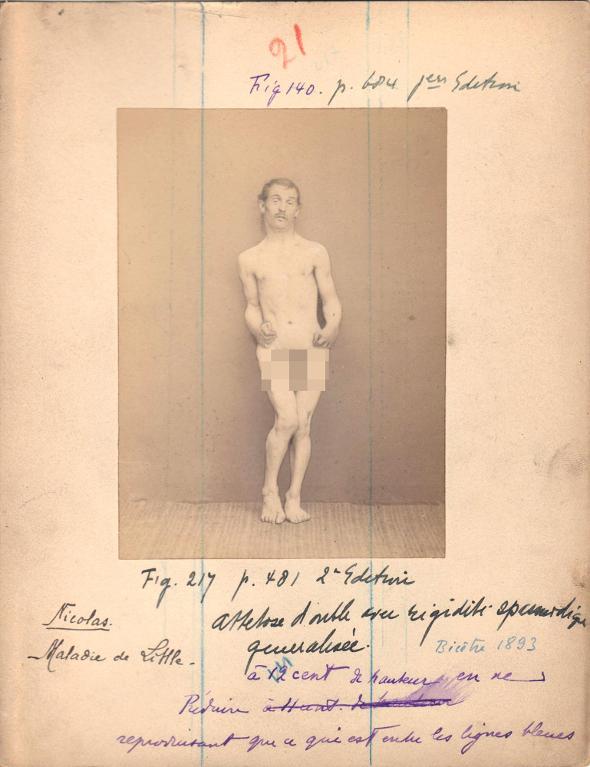 21
Fig 140. p. 684 1ere Edition
Fig. 217 p. 481 2e Edition
Nicolas.
Athetose double avec rigidité spasmodique
généralisée.
Bicêtre 1893
Maladie de Little.
à cent de hauteur en ne
Réduire
reproduisant que ce qui est entre les lignes bleues